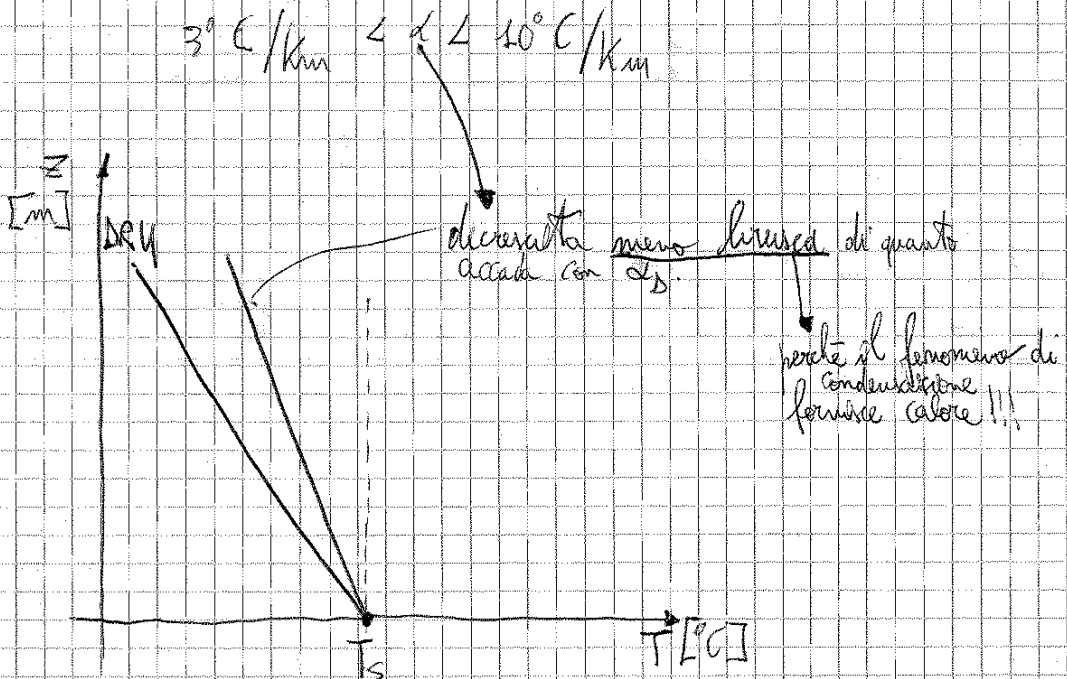 3°C/Km < α < 10°C/Km
Z
[m]
DRY
decrescita meno brusca di quanto
accada con αD.
perchè il fenomeno di
condensazione
fornisce calore!!!
Ts
T [°C]